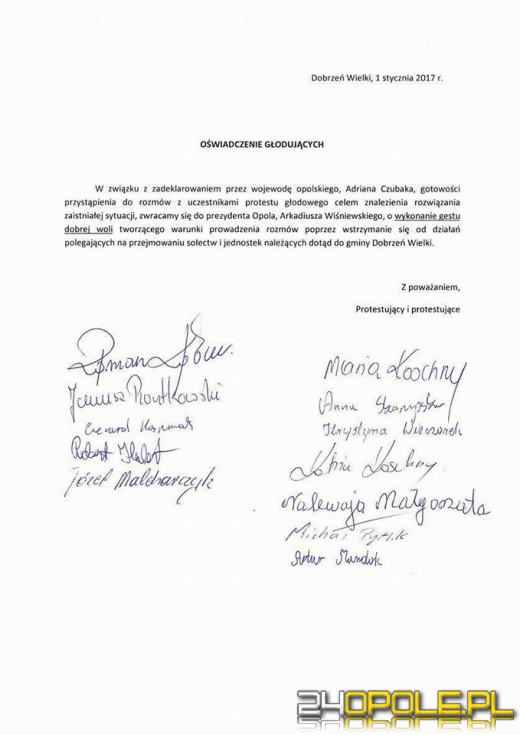 Dobrzeń Wielki, 1 stycznia 2017 r.
OŚWIADCZENIE GŁODUJĄCYCH
W związku z zadeklarowaniem przez wojewodę opolskiego, Adriana Czubaka, gotowości
przystąpienia do rozmów z uczestnikami protestu głodowego celem znalezienia rozwiązania
zaistniałej sytuacji, zwracamy się do prezydenta Opola, Arkadiusza Wiśniewskiego, o wykonanie gestu
dobrej woli tworzącego warunki prowadzenia rozmów poprzez wstrzymanie się od działań
polegających na przejmowaniu sołectw i jednostek należących dotąd do gminy Dobrzeń Wielki.
Z poważaniem,
Protestujący i protestujące
Roman
Janusz
Gerard
Robert
Józef Malcharczyk
Maria
Anna
Krystyna
Nalewaja Małgorzata
Michał
Artur
24OPOLE.PL